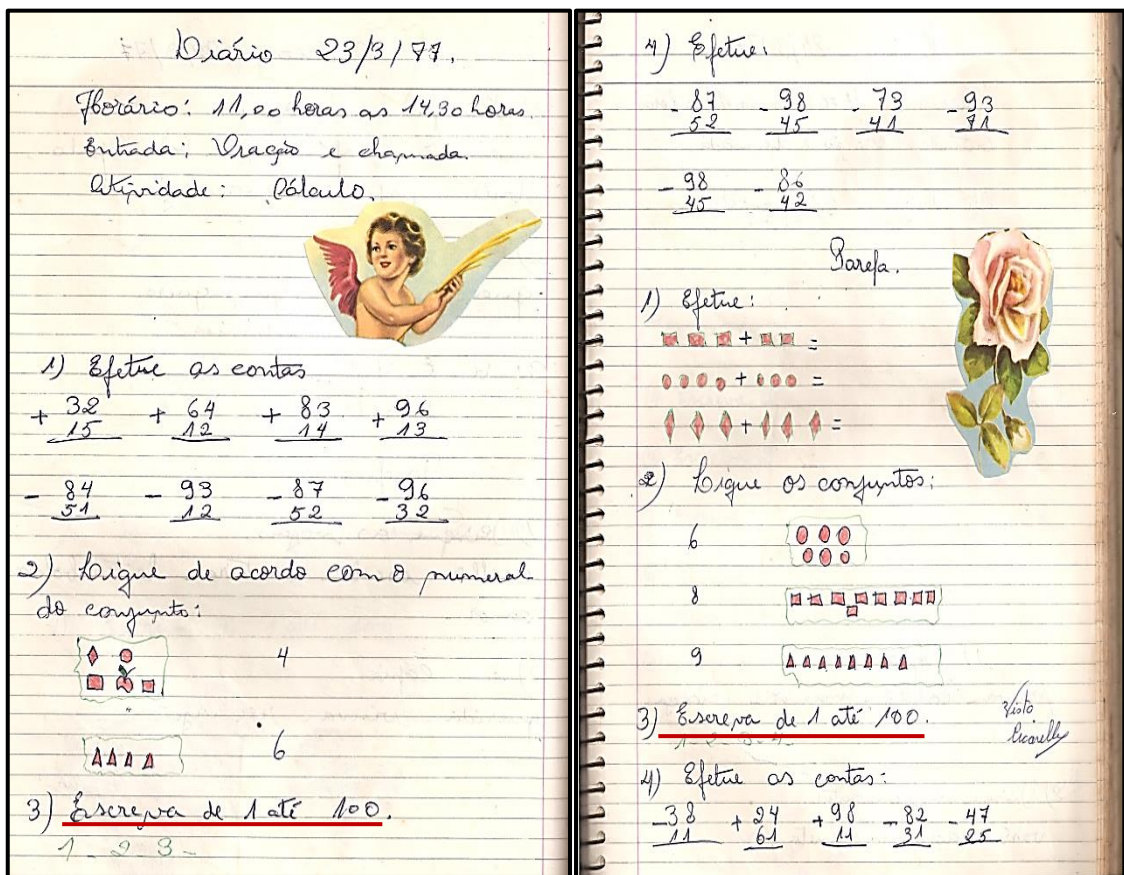 Diário 23/3/77.
Horário: 11,00 horas as 14,30 horas.
Entrada: Oração e chamada.
Atividade: Cálculo.
1) Efetue as contas
+ 32 + 64 + 83 + 96
15 12 14 13
- 84 - 93 - 87 - 96
51 12 52 32
2) Ligue de acordo com o numeral
do conjunto:
4
6
3) Escreva de 1 até 100.
1 - 2 - 3 -
4) Efetue:
- 87 - 98 - 73 - 93
52 45 41 71
- 98 - 86
45 42
Tarefa.
1) Efetue:
+ =
+ =
+ =
2) Ligue os conjuntos:
6
8
9
3) Escreva de 1 até 100.
1 - 2 - 3 - 4 -
Visto
4) Efetue as contas:
- 38 + 24 + 98 - 82 - 47
11 61 11 31 25